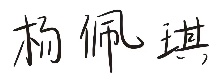 杨佩琪